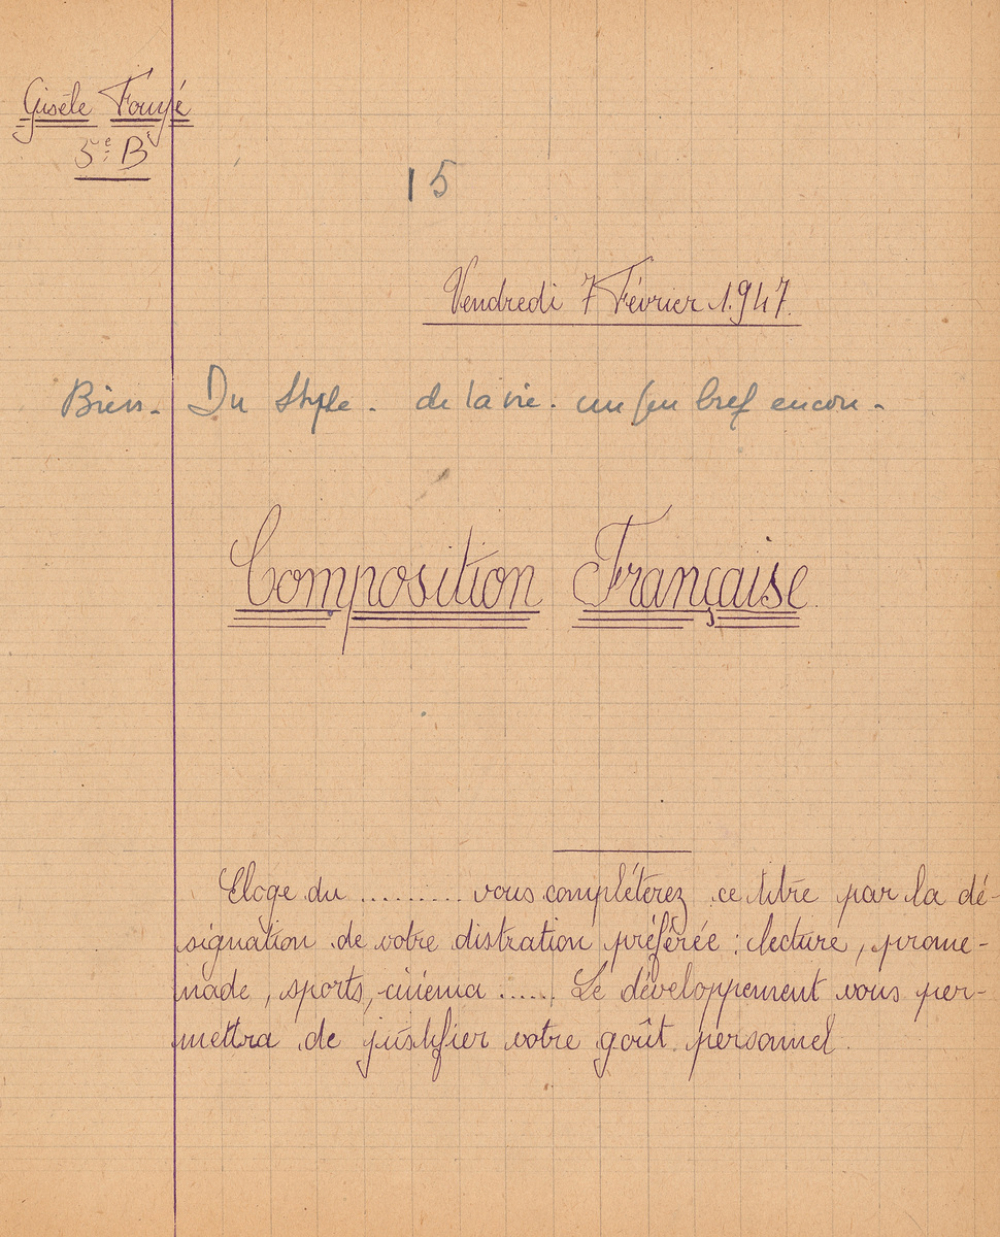 Gisèle Fouyé
5e B
15
Vendredi 7 Février 1.947.
Bien. Du style. de la vie. un peu bref encore.
Composition Française
Eloge du ......... vous complèterez ce titre par la dé-
signation de votre distration préférée : lecture, prome-
nade, sports, cinéma ...... Le développement vous per-
mettra de justifier votre goût personnel.